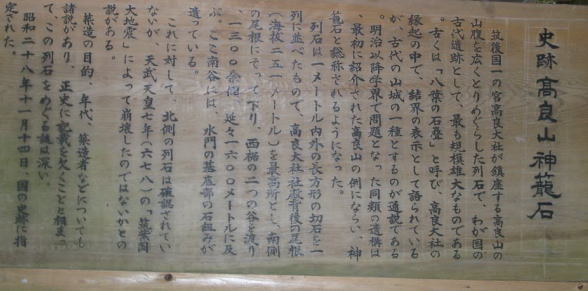 史跡高良山神籠石
筑後国一の宮高良大社が鎮座する高良山の
山腹を広くとりめぐらした列石で、わが国の
古代遺跡として、最も規模雄大なものである
。古くは「八葉の石畳」と呼び、高良大社の
縁起の中で、結界の表示として語られている
が、古代の山城の一種とするのが通説である
。明治以降学界で問題となった同類の遺構は
、最初に紹介された高良山の例にならい、神
籠石と総称されるようになった。
列石は一メートル内外の長方形の切石を一
列に並べたもので、高良大社社殿背後の尾根
(海抜二五一メートル)を最高所とし、南側
の尾根にそって下り、西裾の二つの谷を渡り
、一三〇〇余個、延々一六〇〇メートルに及
ぶ。ここ南谷には、水門の基底部の石組みが
遺っている。
これに対して、北側の列石は確認されてい
ないが、天武天皇七年(六七八)の「筑紫国
大地震」によって崩壊したのではないかとの
説がある。
築造の目的、年代、築造者などについても
諸説があり、正史に記載を欠くことと相まっ
て、この列石をめぐる謎は深い。
昭和二十八年十一月十四日、国の史跡に指
定された。